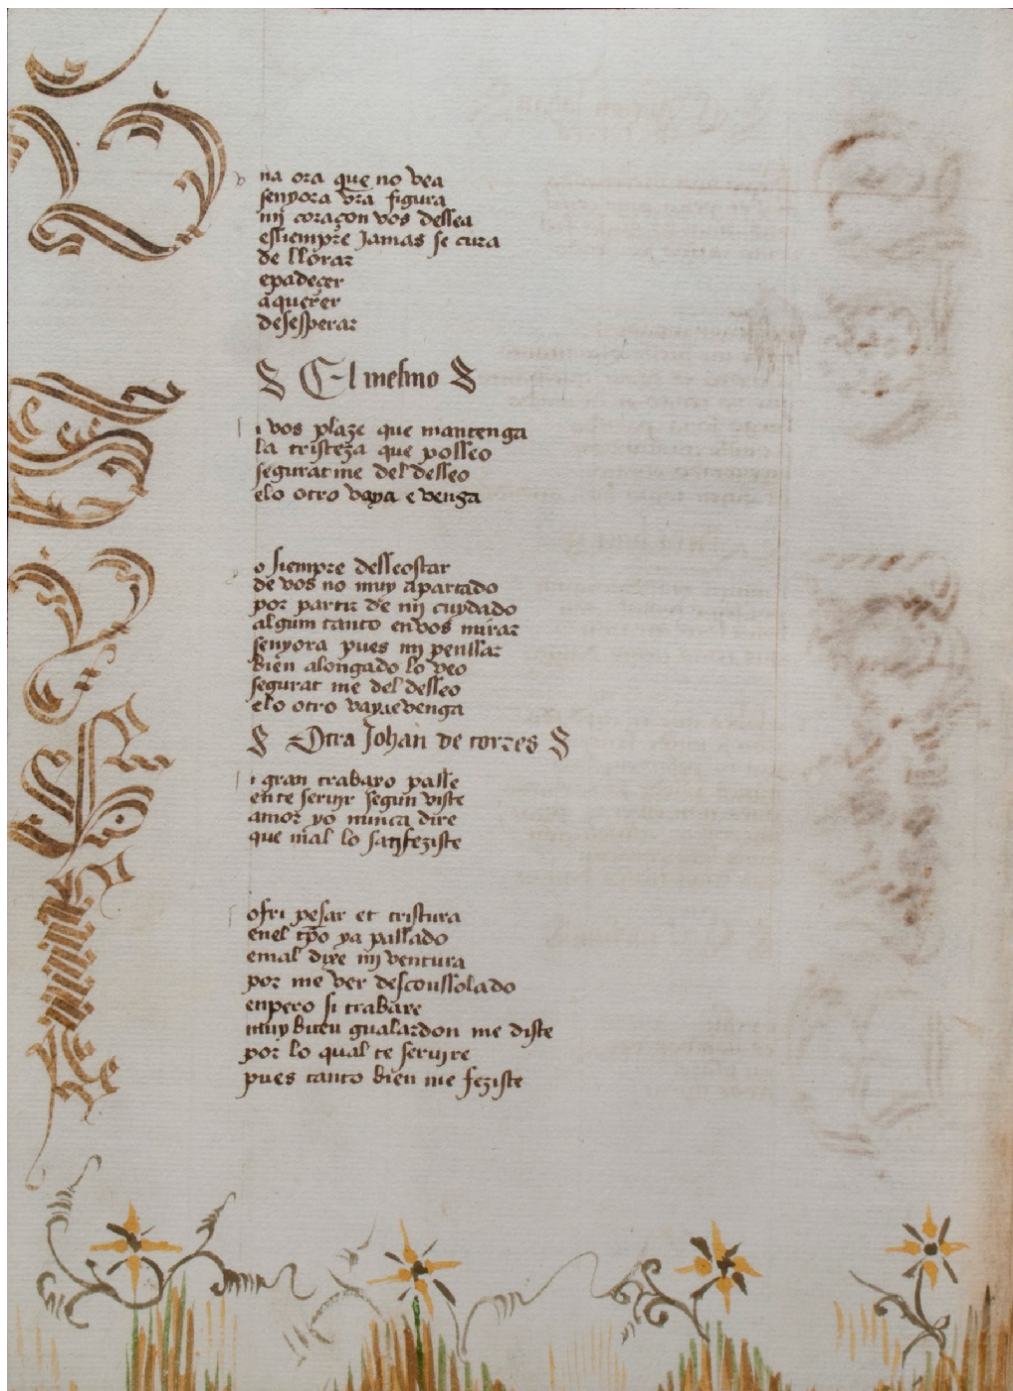 Una ora que no vea
senyora vr̃a figura
mj coraçon vos dessea
essiempre Jamas se cura
de llorar
epadeçer
a querer
desesperar
El mesmo
Si vos plaze que mantenga
la tristeza que posseo
segurat me del desseo
elo otro vaya e venga
Yo siempre desseo star
de vos no muy apartado
por partir de mj cuydado
algum tanto en vos mirar
senyora pues mj penssar
bien alongado lo veo
segurat me del desseo
elo otro vayaevenga
Otra Johan de torres
Si gran trabaio passe
en te seruir segun viste
amor yo nunca dire
que mal lo satisfeziste
Sofri pesar et tristura
enel tp̃o ya passado
emal dire mj ventura
por me ver desconssolado
enpero si trabaie
muy bien gualardon me diste
por lo qual te seruire
pues tanto bien me feziste